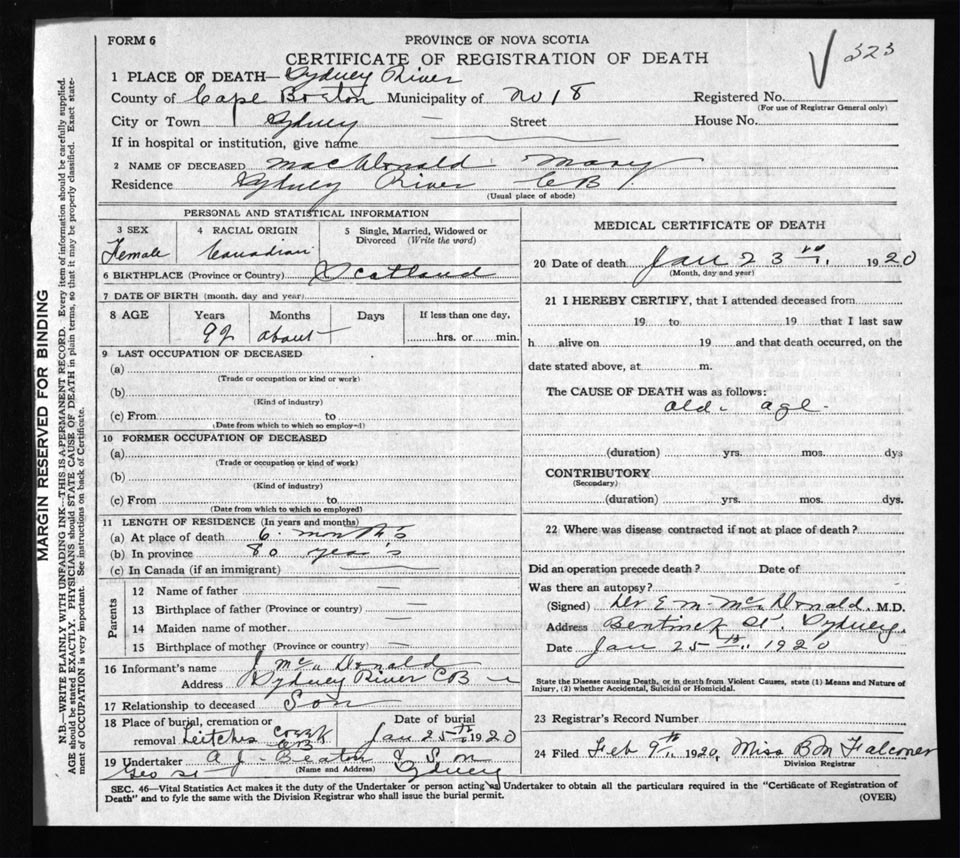 FORM 6
PROVINCE OF NOVA SCOTIA
CERTIFICATE OF REGISTRATION OF DEATH
323
1 PLACE OF DEATH— Sydney River
County of Cape Breton Municipality of No 18 Registered No.
(For use of Registrar General only)
City or Town Sydney — Street House No.
If in hospital or institution, give name
2 NAME OF DECEASED MacDonald Mary
Residence Sydney River C B.
(Usual place of abode)
PERSONAL AND STATISTICAL INFORMATION
3 SEX Female
4 RACIAL ORIGIN Canadian
5 Single, Married, Widowed or Divorced (Write the word)
6 BIRTHPLACE (Province or Country) Scotland
7 DATE OF BIRTH (month, day and year)
8 AGE Years Months Days If less than one day,
92 about hrs. or min.
9 LAST OCCUPATION OF DECEASED
(a)
(Trade or occupation or kind or work)
(b)
(Kind of industry)
(c) From to
(Date from which to which so employed)
10 FORMER OCCUPATION OF DECEASED
(a)
(Trade or occupation or kind of work)
(b)
(Kind of industry)
(c) From to
(Date from which to which so employed)
11 LENGTH OF RESIDENCE (In years and months)
(a) At place of death 6 month's
(b) In province 80 year's
(c) In Canada (if an immigrant)
Parents
12 Name of father —
13 Birthplace of father (Province or country) —
14 Maiden name of mother —
15 Birthplace of mother (Province or country) —
16 Informant's name J McDonald
Address Sydney River CB
17 Relationship to deceased Son
18 Place of burial, cremation or removal Leitches Creek CB
Date of burial Jan 25th 1920
19 Undertaker A J Beaton & Son
Geo St (Name and Address) Sydney
MEDICAL CERTIFICATE OF DEATH
20 Date of death Jan 23 1920
(Month, day and year)
21 I HEREBY CERTIFY, that I attended deceased from
19 to 19 that I last saw
h alive on 19 and that death occurred, on the
date stated above, at m.
The CAUSE OF DEATH was as follows:
old age
(duration) yrs. mos. dys
CONTRIBUTORY
(Secondary)
(duration) yrs. mos. dys.
22 Where was disease contracted if not at place of death?
Did an operation precede death? Date of
Was there an autopsy?
(Signed) Dr E. M. McDonald. M.D.
Address Bentinck St. Sydney.
Date Jan 25th 1920
State the Disease causing Death, or in death from Violent Causes, state (1) Means and Nature of
Injury, (2) whether Accidental, Suicidal or Homicidal.
23 Registrar's Record Number
24 Filed Feb 9th 1920, Miss B M Falconer
Division Registrar
SEC. 46—Vital Statistics Act makes it the duty of the Undertaker or person acting as Undertaker to obtain all the particulars required in the "Certificate of Registration of
Death" and to fyle the same with the Division Registrar who shall issue the burial permit. (OVER)
MARGIN RESERVED FOR BINDING
N.B.—WRITE PLAINLY WITH UNFADING INK—THIS IS A PERMANENT RECORD. Every item of information should be carefully supplied.
AGE should be stated EXACTLY. PHYSICIANS should STATE CAUSE OF DEATH in plain terms, so that it may be properly classified. Exact state-
ment of OCCUPATION is very important. See instructions on back of Certificate.